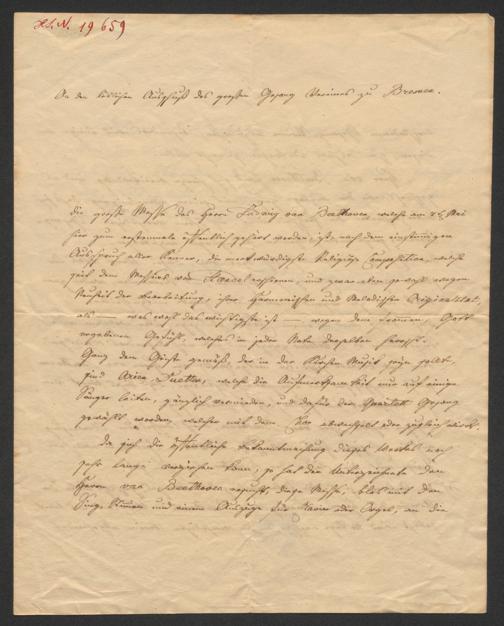 H.I.N. 19659
An den löblichen Ausschuß des großen Gesang Vereines zu Bremen.
Die große Messe des Herrn Ludwig van Beethoven, welche am Mai
hier zum erstenmale öffentlich gehört worden, ist, nach dem einstimmigen
Ausspruch aller Kenner, die merkwürdigste religiöse Composition, welche
seit dem Messias von Händel erschienen, und zwar eben sowohl wegen
Neuheit der Bearbeitung, ihrer Harmonischen und Melodischen Originalität,
als — was wohl das wichtigste ist — wegen dem frommen, Gott
ergebenen Gefühl, welches in jeder Note derselben herrscht.
Ganz dem Geiste gemäß, der in der Kirchen Musik seyn sollte,
sind Arien Duetten, welche die Aufmerksamkeit nur auf einige
Sänger leiten, gänzlich vermieden, und dafür der Quartett Gesang
gewählt worden, welcher mit dem Chor abwechselt oder zugleich wirkt.
Da sich die öffentliche Bekanntmachung dieses Werkes noch
sehr lange verziehen kann, so hat der Unterzeichnete den
Herrn van Beethoven ersucht, diese Messe, blos mit den
Sing Stimmen und einem Auszuge für Klavier oder Orgel, an die